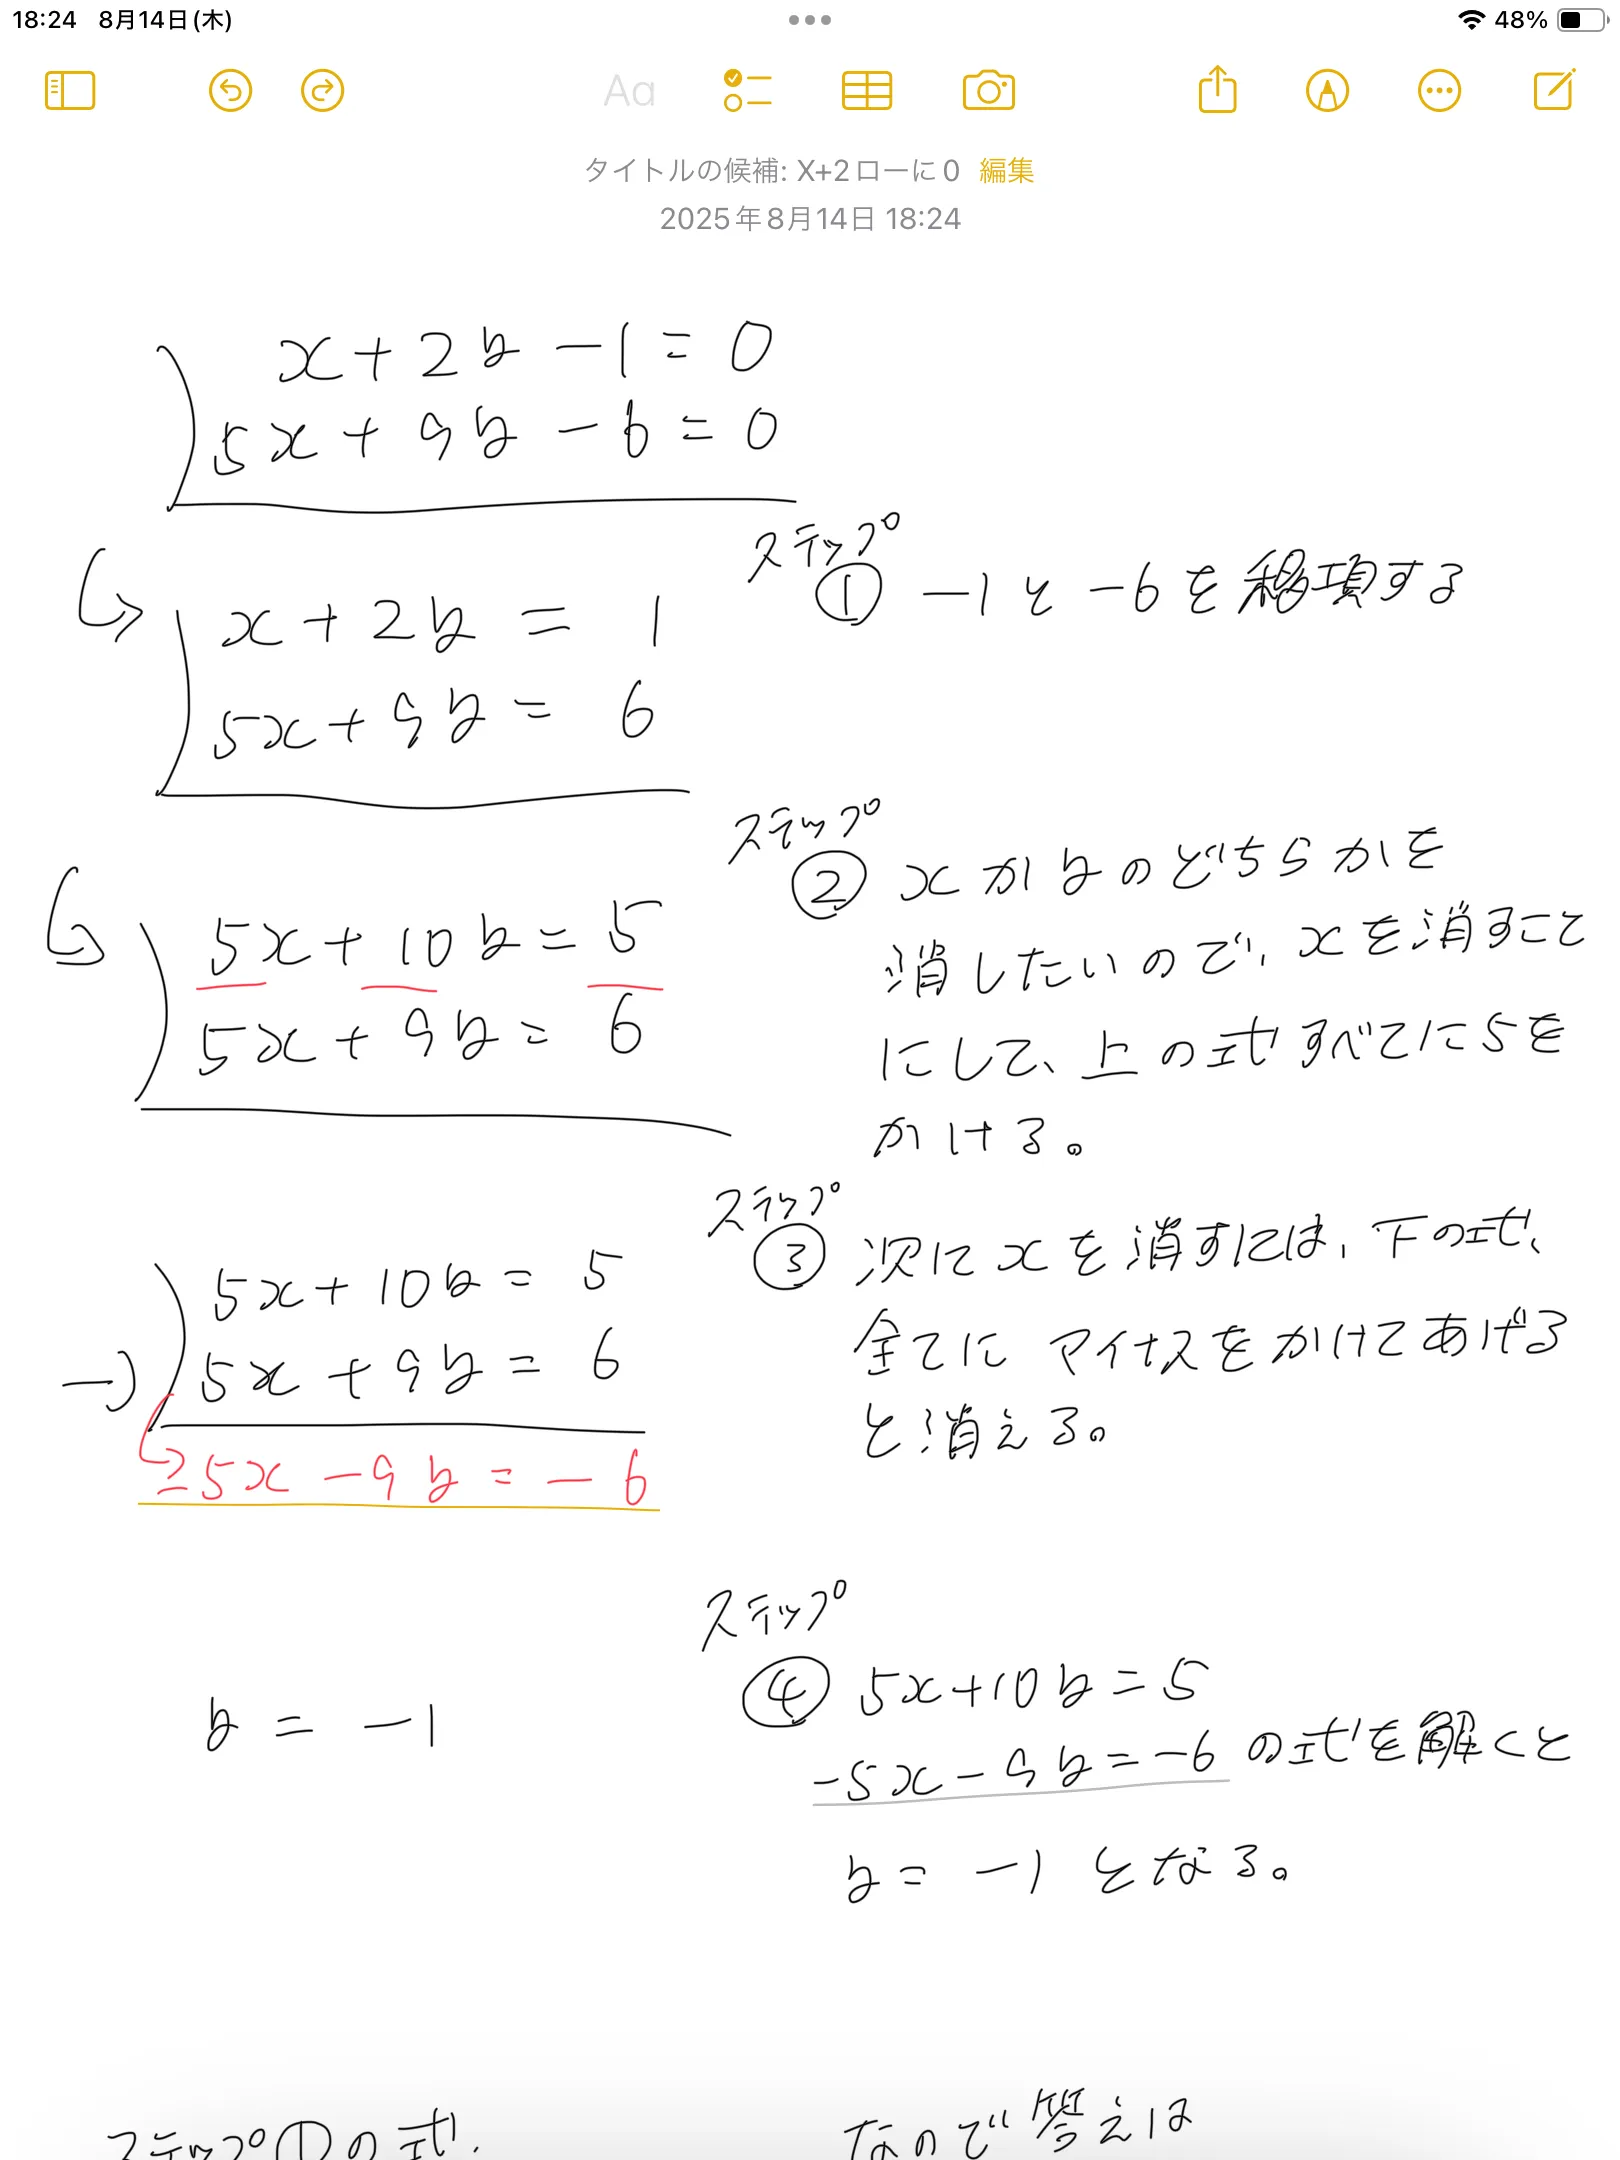 18:24 8月14日(木)
48%
Aa
タイトルの候補: X+2ローに0 編集
2025年8月14日 18:24
x+2y-1=0
5x+9y-6=0
ステップ
① -1と-6を移項する
x+2y=1
5x+9y=6
ステップ
② xかyのどちらかを
消したいので、xを消すこと
にして、上の式すべてに5を
かける。
5x+10y=5
5x+9y=6
ステップ
③ 次にxを消すには、下の式、
全てにマイナスをかけてあげる
と消える。
5x+10y=5
-) 5x+9y=6
-5x-9y=-6
ステップ
④ 5x+10y=5
-5x-9y=-6の式を解くと
y=-1となる。
y=-1
ステップ①の式、
なので答えは